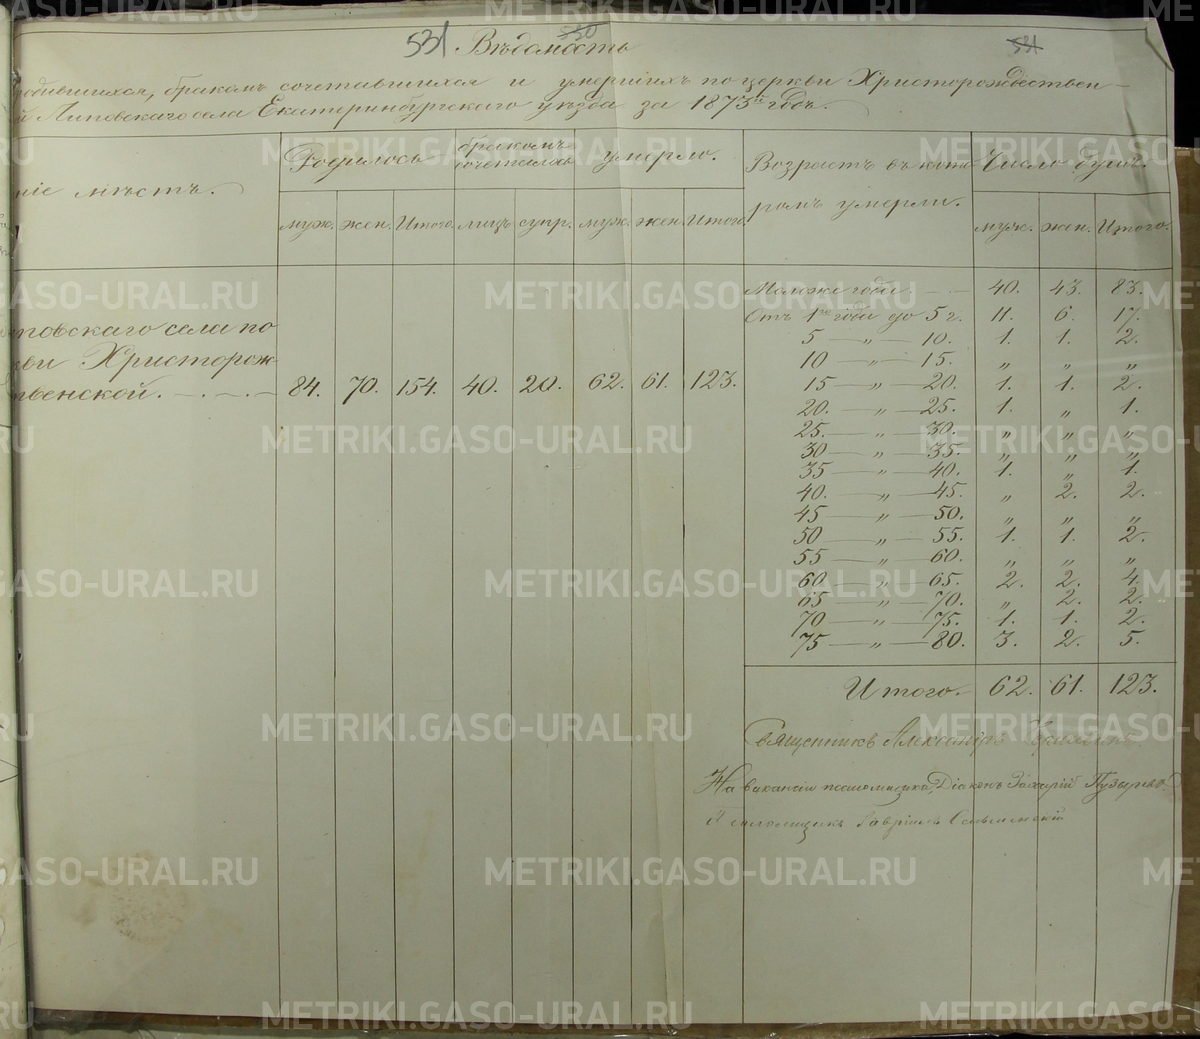 531 530 531
Вѣдомость
родившихся, бракомъ сочетавшихся и умершихъ по церкви Христорождествен-
й Липовскаго села Екатеринбургскаго уѣзда за 1873й годъ.
ніе мѣстъ.
Родилось
бракомъ сочеталось
умерло.
Возрастъ въ кото-
ромъ умерли.
Число душъ.
муж. жен. Итого. лицъ супр. муж. жен. Итого.
муж. жен. Итого.
повскаго села по
кви Христорож-
твенской. 84. 70. 154. 40. 20. 62. 61. 123.
Моложе года 40. 43. 83.
Отъ 1го года до 5 г. 11. 6. 17.
5 — „ — 10. 1. 1. 2.
10 — „ — 15. „ „ „
15 — „ — 20. 1. 1. 2.
20. — „ — 25. 1. „ 1.
25. — „ — 30. „ „ „
30 — „ — 35. „ „ „
35 — „ — 40. 1. „ 1.
40. — „ — 45. „ 2. 2.
45 — „ — 50. „ „ „
50 — „ — 55. 1. 1. 2.
55 — „ — 60. „ „ „
60 — „ — 65. 2. 2. 4.
65 — „ — 70. „ 2. 2.
70 — „ — 75. 1. 1. 2.
75 — „ — 80. 3. 2. 5.
Итого. 62. 61. 123.
Священникъ Александръ
На вакансіи псаломщика, Діаконъ Захарій Пузырев
Псаломщикъ Гавріилъ
METRIKI.GASO-URAL.RU